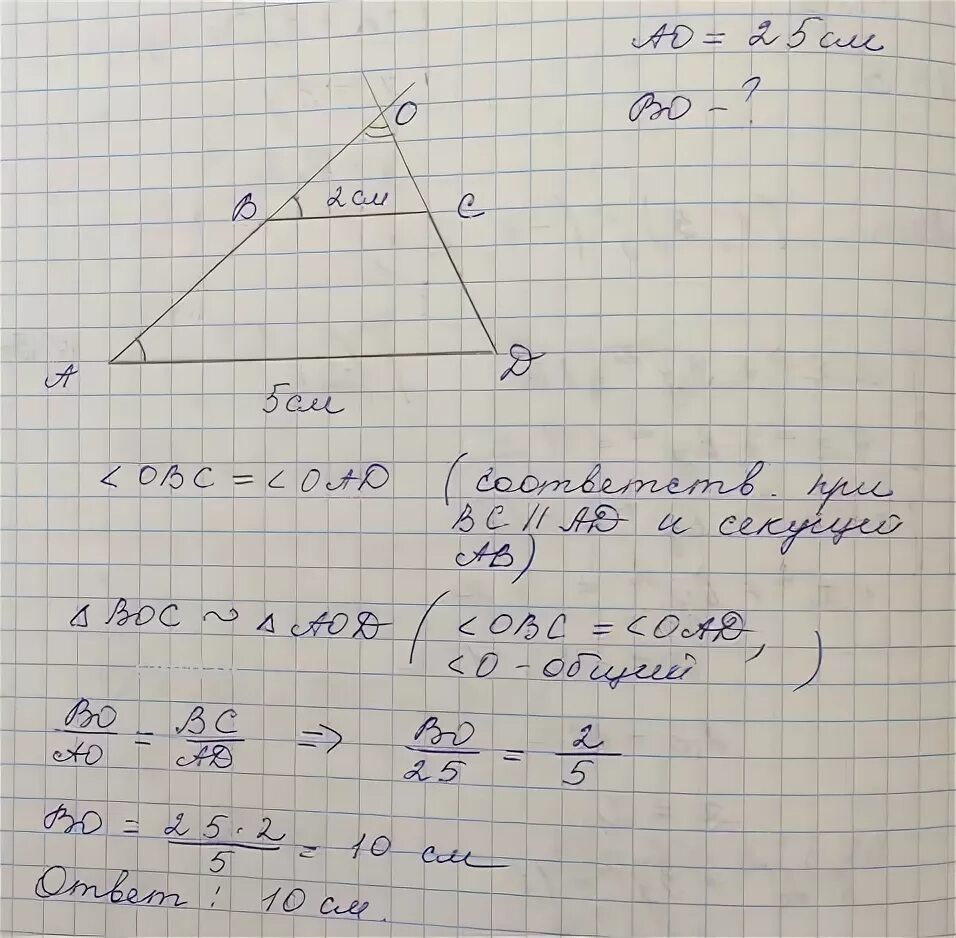 AO = 25 см
BO - ?
O
B 2 см C
A D
5 см
∠OBC = ∠OAD (соответств. при
BC || AD и секущей
AB)
△BOC ~ △AOD (∠OBC = ∠OAD,
∠O - общий)
BO/AO = BC/AD ⇒ BO/25 = 2/5
BO = 25·2/5 = 10 см
Ответ: 10 см.